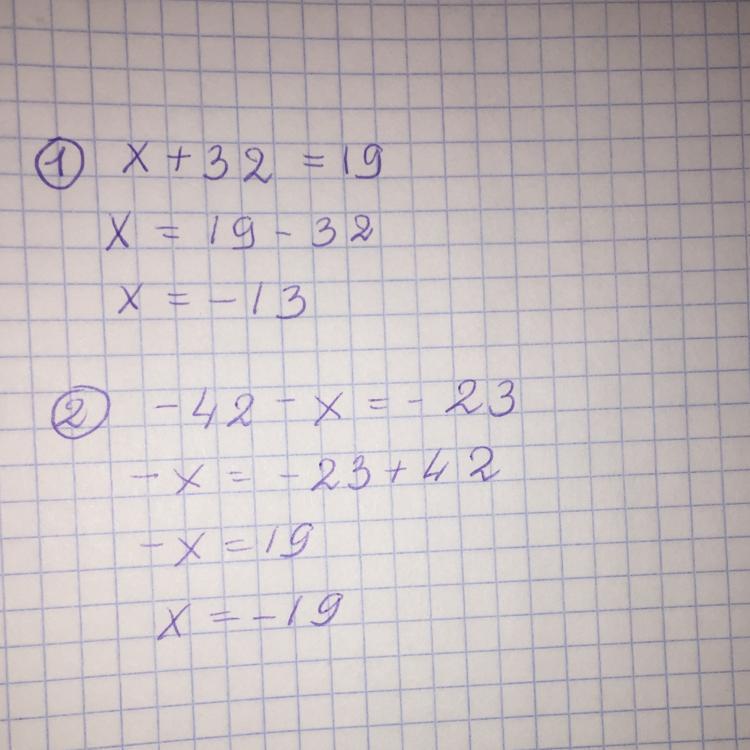 ① x + 32 = 19
x = 19 - 32
x = - 13
② - 42 - x = - 23
- x = - 23 + 42
- x = 19
x = - 19